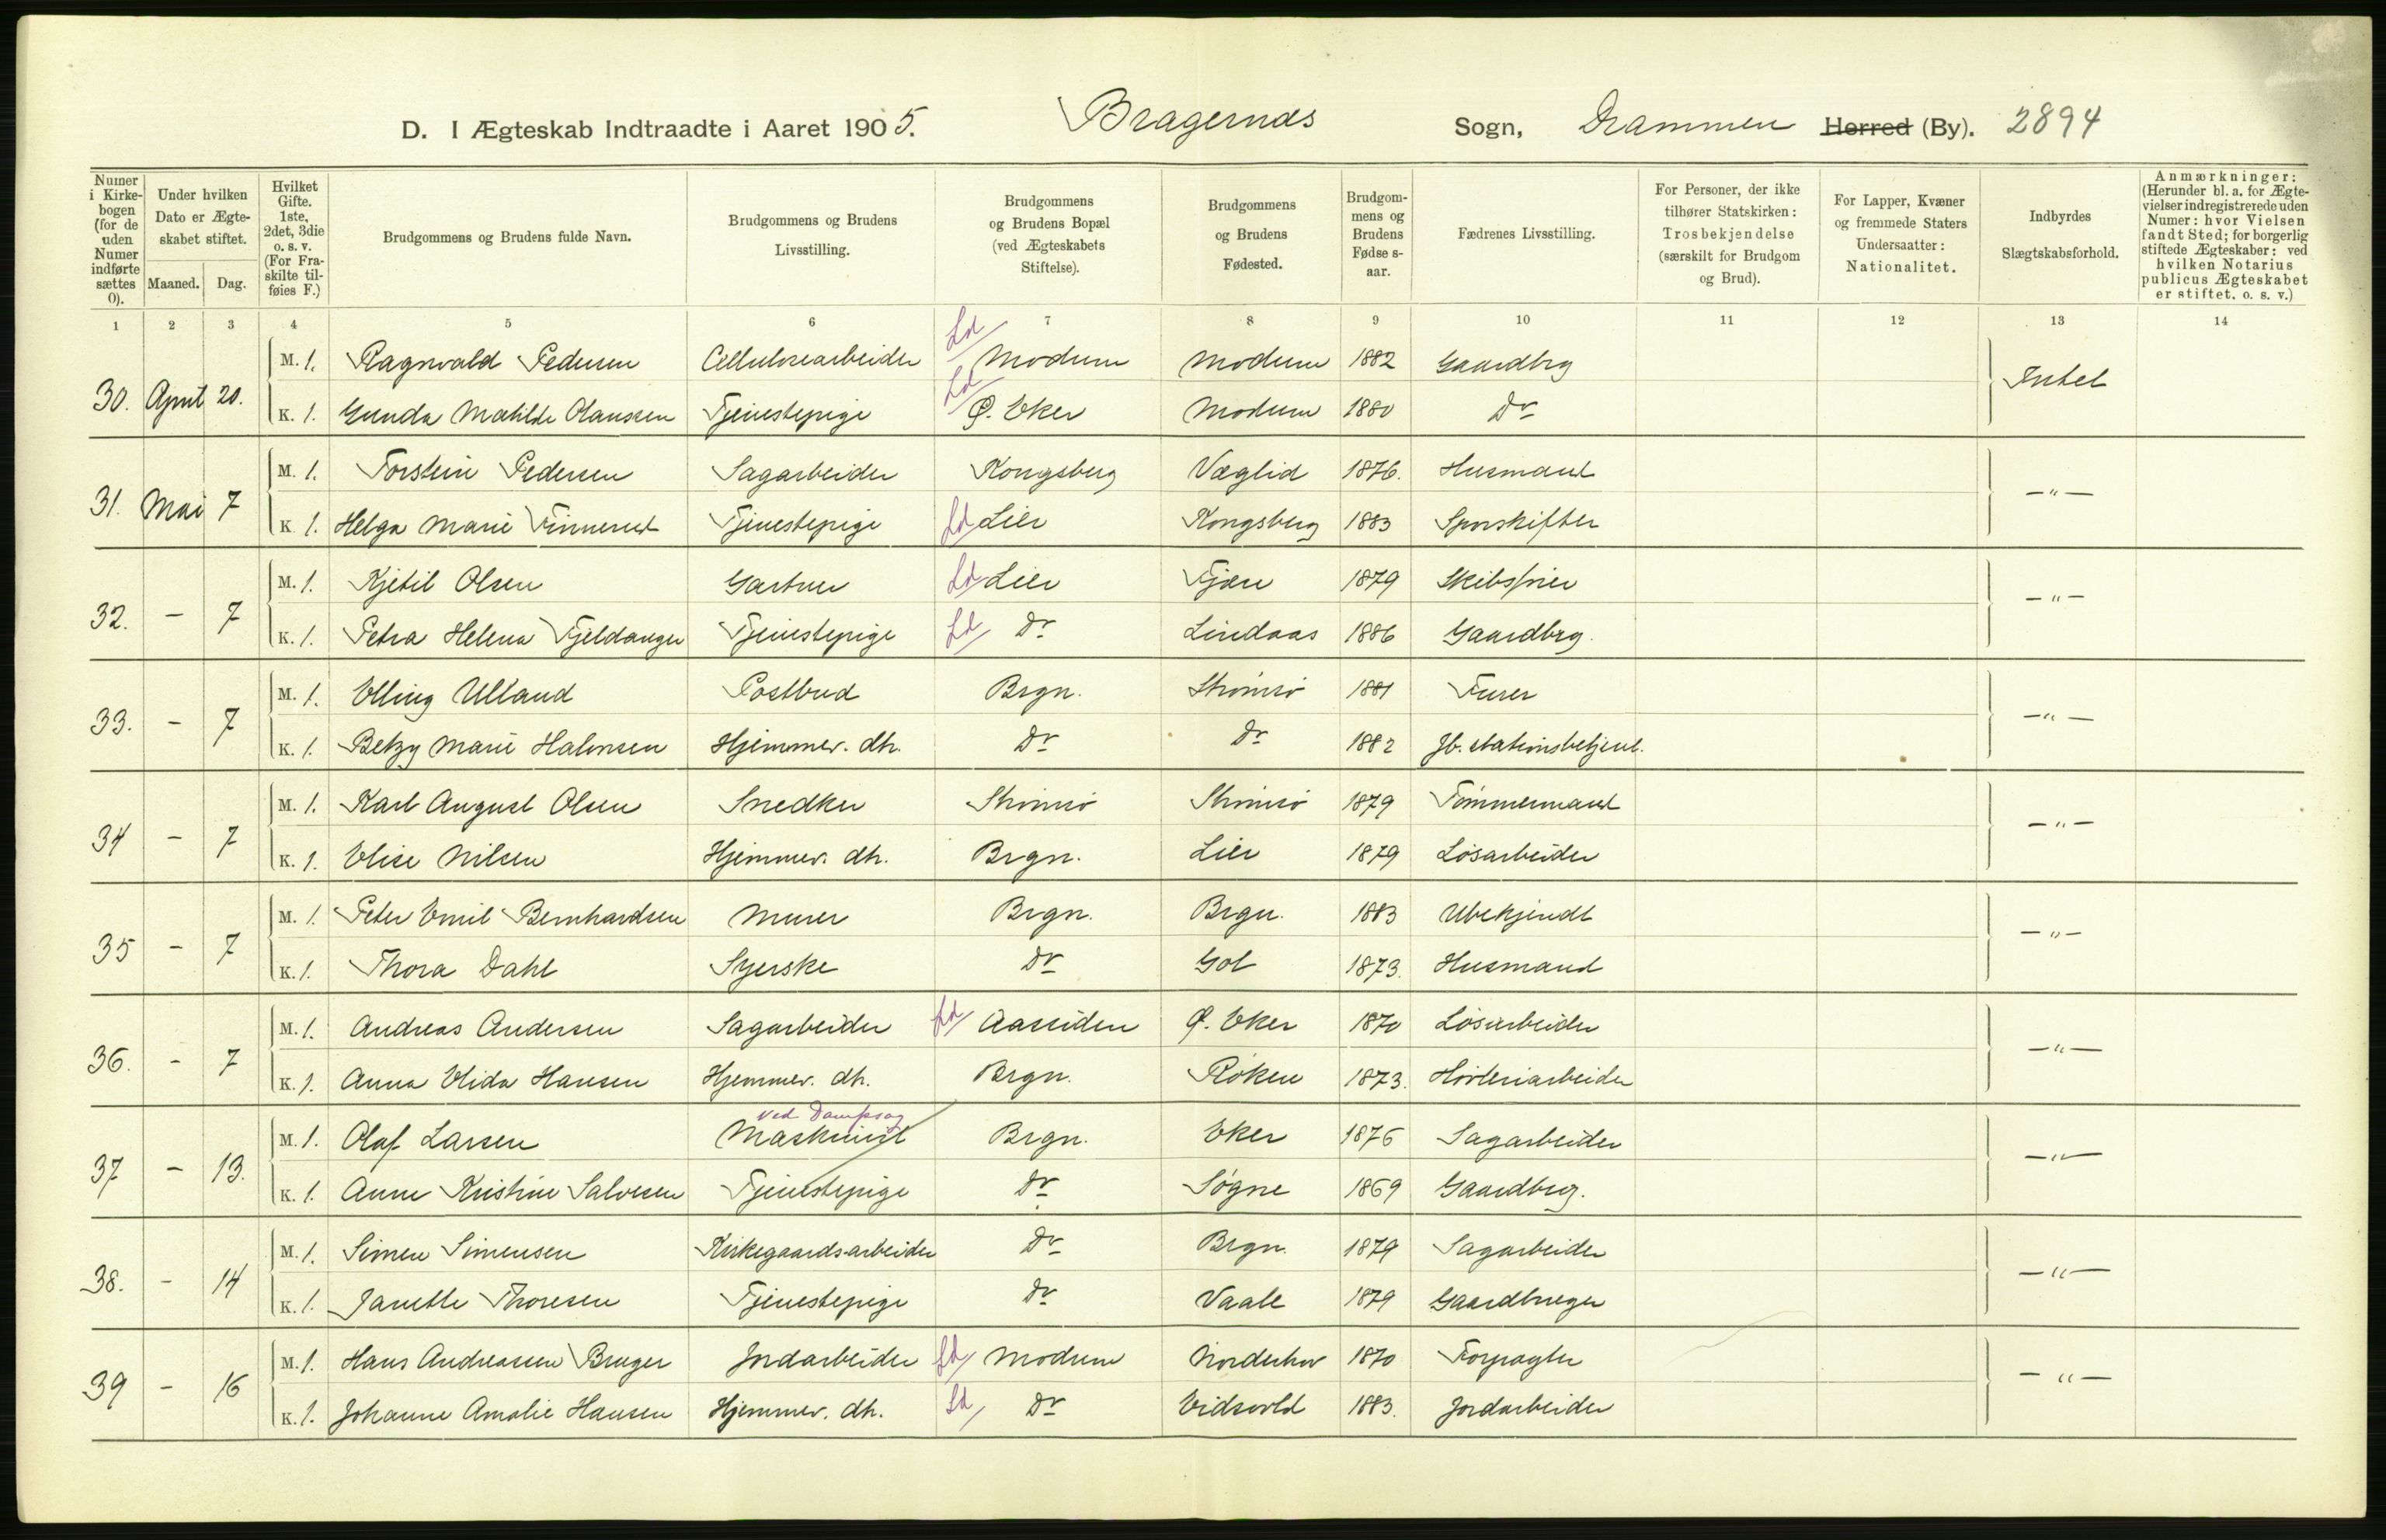 D. I Ægteskab Indtraadte i Aaret 1905. Bragernæs Sogn, Drammen Herred (By). 2894
Numer i Kirkebogen (for de uden Numer indførte sættes 0).
Under hvilken Dato er Ægteskabet stiftet.
Maaned. Dag.
Hvilket Gifte. 1ste, 2det, 3die o. s. v. (For Fraskilte tilføies F.)
Brudgommens og Brudens fulde Navn.
Brudgommens og Brudens Livsstilling.
Brudgommens og Brudens Bopæl (ved Ægteskabets Stiftelse).
Brudgommens og Brudens Fødested.
Brudgommens og Brudens Fødselsaar.
Fædrenes Livsstilling.
For Personer, der ikke tilhører Statskirken: Trosbekjendelse (særskilt for Brudgom og Brud).
For Lapper, Kvæner og fremmede Staters Undersaatter: Nationalitet.
Indbyrdes Slægtskabsforhold.
Anmærkninger: (Herunder bl. a. for Ægtevielser indregistrerede uden Numer: hvor Vielsen fandt Sted; for borgerlig stiftede Ægteskaber: ved hvilken Notarius publicus Ægteskabet er stiftet. o. s. v.)
1 2 3 4 5 6 7 8 9 10 11 12 13 14
30. April 20. M. 1. Ragnvald Pedersen Cellulosearbeider Ld Modum Modum 1882 Gaardbrg Intet
K. 1. Gunda Mathilde Olaussen Tjenestepige Ld Ø. Eker Modum 1880 Do
31. Mai 7 M. 1. Torstein Pedersen Sagarbeider Kongsberg Væglid 1876. Husmand —"—
K. 1. Helga Marie Finnerud Tjenestepige Ld Lier Kongsberg 1883 Sporskifter
32. - 7 M. 1. Kjetil Olsen Gartner Ld Lier Fjære 1879 —"—
K. 1. Petra Helena Fjeldanger Tjenestepige Ld Do Lindaas 1886 Gaardbrg.
33. - 7 M. 1. Elling Ulland Postbud Brgn. Strømsø 1881 Furer —"—
K. 1. Betzy Marie Halvorsen Hjemmev. dtr. Do Do 1882 Jb. stationsbetjent.
34 - 7 M. 1. Karl August Olsen Snedker Strømsø Strømsø 1879 Tømmermand —"—
K. 1. Elise Nilsen Hjemmev. dtr. Brgn. Lier 1879 Løsarbeider
35 - 7 M. 1. Peter Emil Bernhardsen Murer Brgn. Brgn. 1883 Ubekjendt —"—
K. 1. Thora Dahl Syerske Do Gol 1873. Husmand
36. - 7 M. 1. Andreas Andersen Sagarbeider Ld Aassiden Ø. Eker 1870 Løsarbeider —"—
K. 1. Anna Elida Hansen Hjemmev. dtr. Brgn. Røken 1873. Høvleriarbeider
ved Dampsag
37 - 13. M. 1. Olaf Larsen Maskinist Brgn. Eker 1876 Sagarbeider —"—
K. 1. Anne Kristine Salvesen Tjenestepige Do Søgne 1869 Gaardbrg.
38. - 14 M. 1. Simen Simensen Kirkegaards-arbeider Do Brgn. 1879 Sagarbeider —"—
K. 1. Janette Thoresen Tjenestepige Do Vaale 1879 Gaardbruger
39 - 16 M. 1. Hans Andreassen Bruger Jordarbeider Ld Modum Norderhov 1870 Forpagter —"—
K. 1. Johanne Amalie Hansen Hjemmev. dtr. Ld Do Eidsvold 1883. Jordarbeider